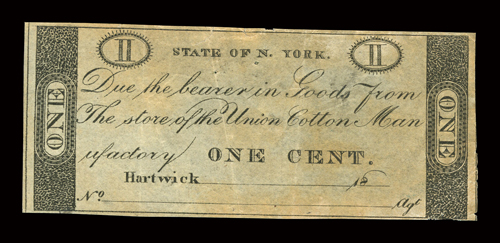 II STATE OF N. YORK. II
ONE
Due the bearer in Goods from
The store of the Union Cotton Man
ufactory ONE CENT.
Hartwick 18
No Agt
ONE